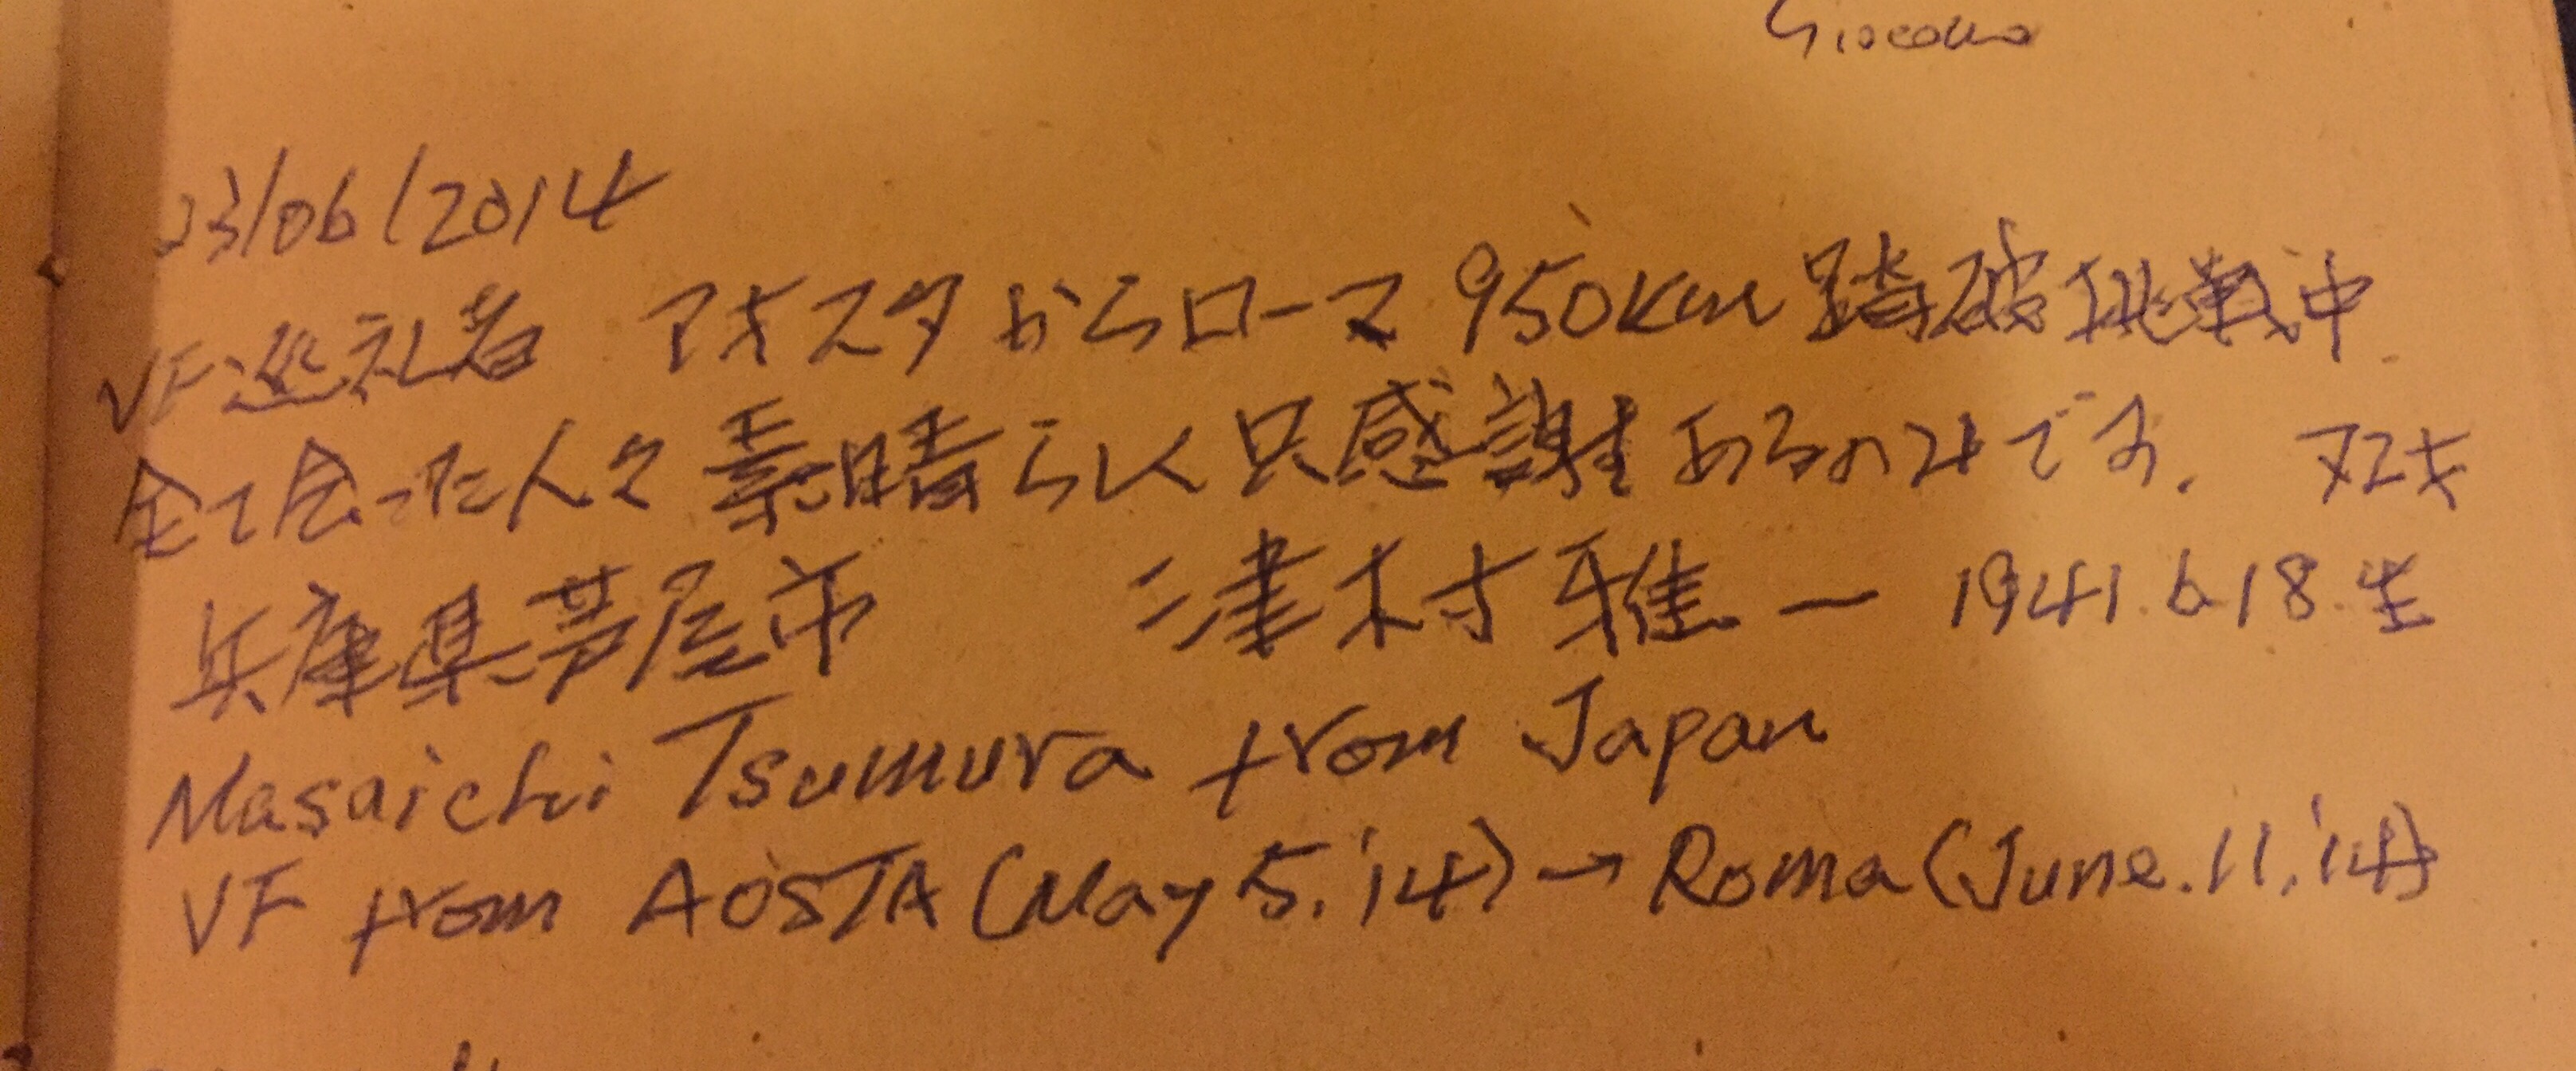 Giacomo
23/06/2014
VF巡礼者 アオスタからローマ 950Km 踏破挑戦中
全て会った人々素晴らしく只感謝あるのみです. 72才
兵庫県芦屋市 津村雅一 1941.6.18.生
Masaichi Tsumura from Japan
VF from AOSTA (May 5.'14) → Roma (June.11.'14)